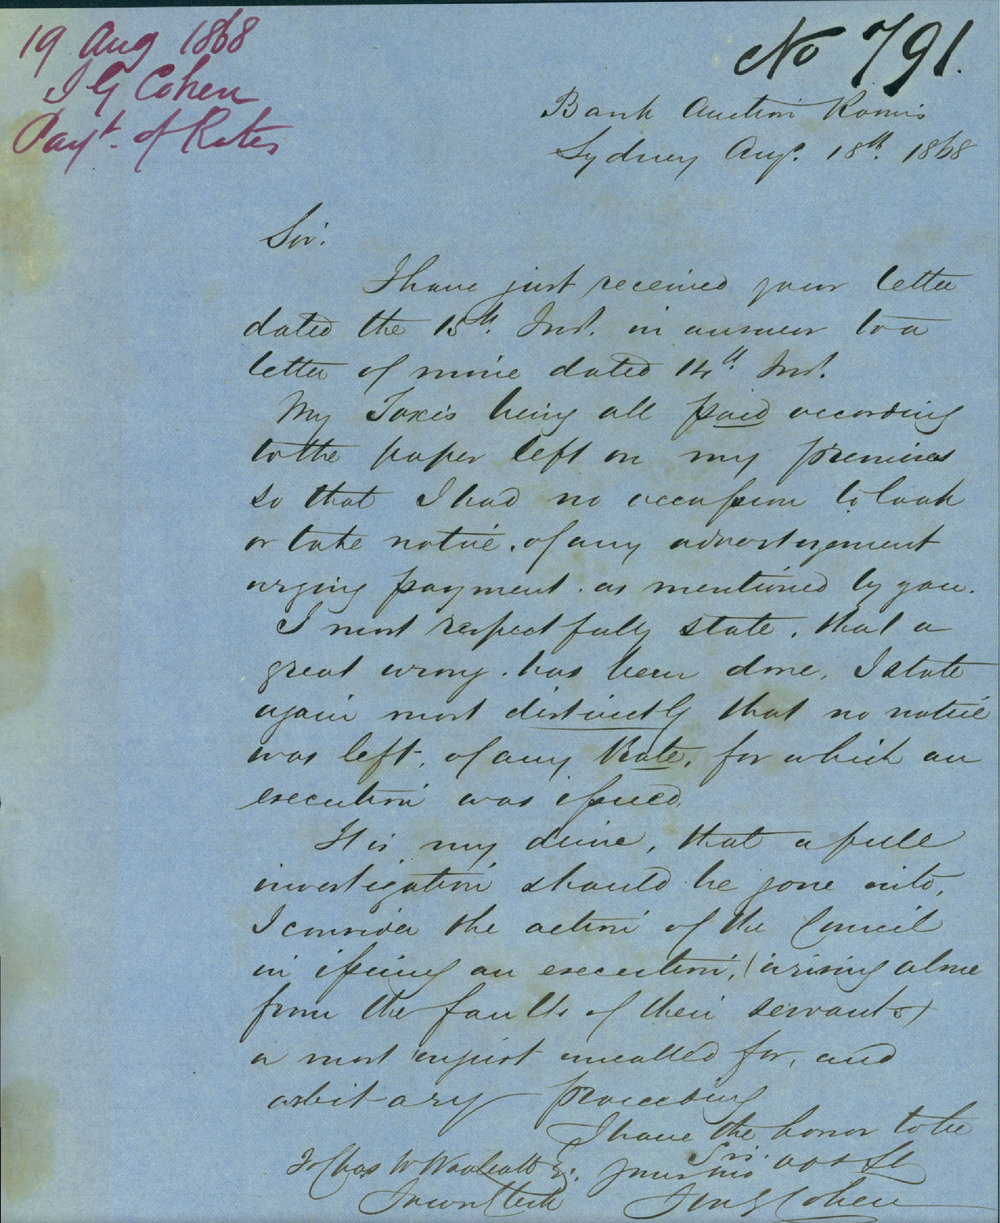 19 Aug 1868
I G Cohen
Payt. of Rates
No 791.
Bank Auction Rooms
Sydney Augt. 18th. 1868
Sir.
I have just received your letter
dated the 15th. Inst. in answer to a
letter of mine dated 14th. Inst.
My Taxes being all paid according
to the paper left on my premises
so that I had no occassion to look
or take notice. of any advertizement
urging payment. as mentioned by you.
I most respectfully state, that a
great wrong. has been done, I state
again most distinctly that no notice
was left. of any Rate, for which an
execution was issued.
It is my desire, that a full
investigation should be gone into,
I consider the action of the Council
in issuing an execution, (arising alone
from the faults of their servants)
a most unjust uncalled for, and
arbitary proceeding
I have the honor to be
Sir.
To Chas W Woolcott Esq. your mo obt St
Town Clerk
Cohen